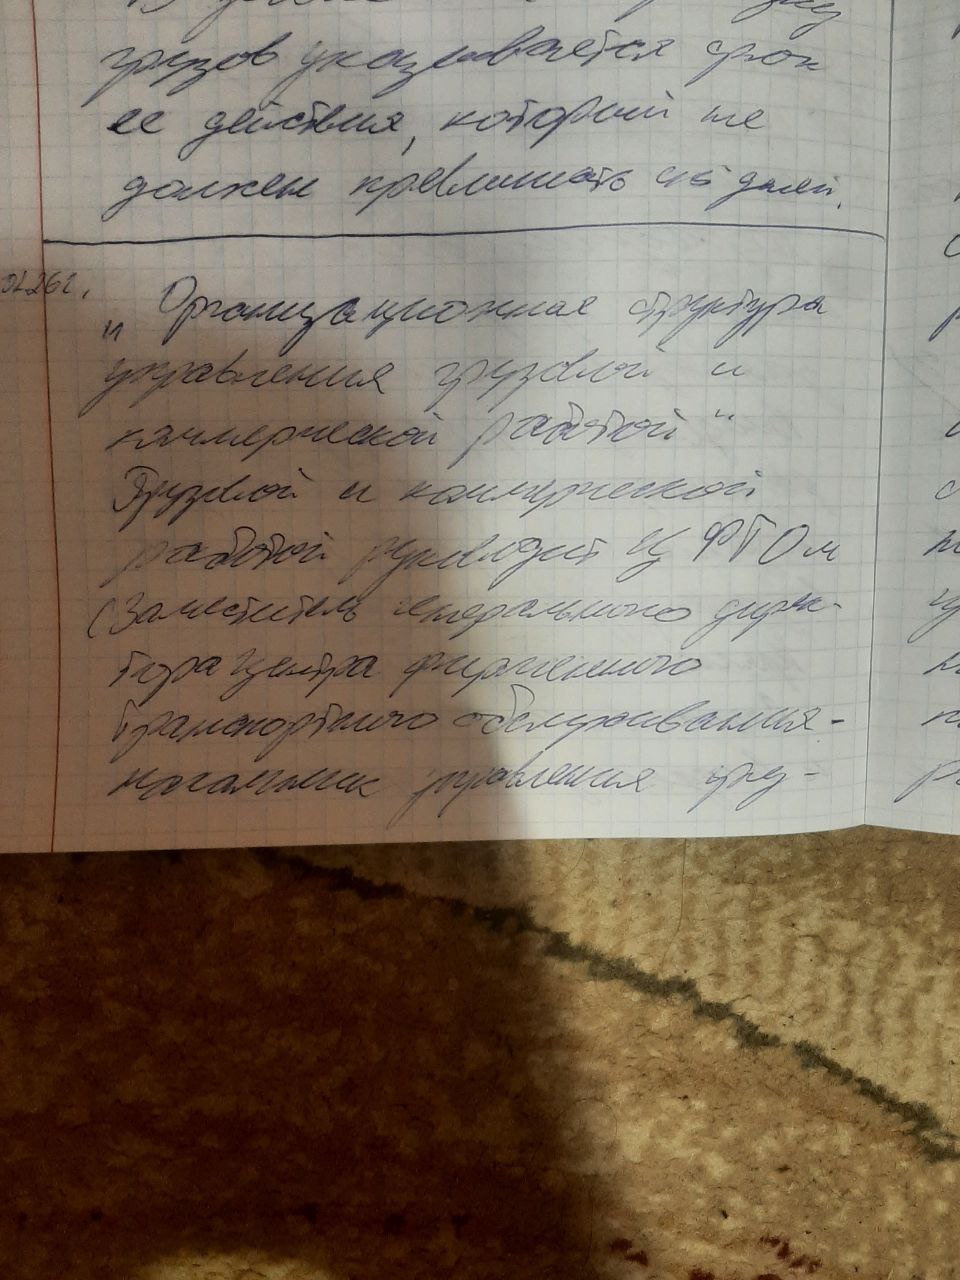 грузов указывается срок
ее действия, который не
должен превышать 45 дней.
02.26г.
"Организационная структура
управления грузовой и
коммерческой работой"
Грузовой и коммерческой
работой руководит ЦФТОм
(Заместитель генерального дирек-
тора Центра фирменного
транспортного обслуживания-
начальник управления гру-